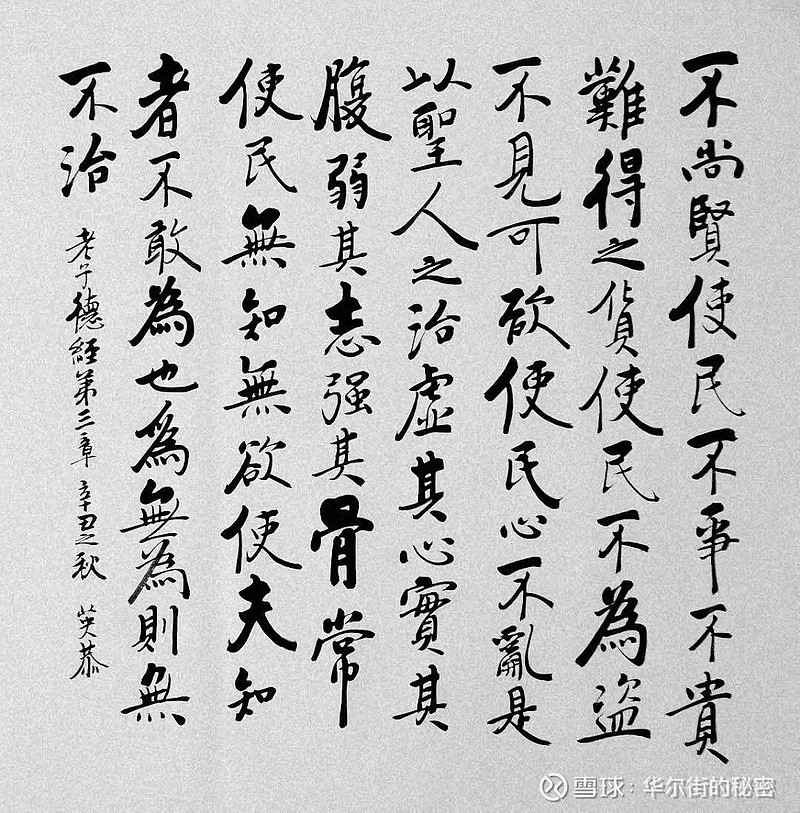 不尚賢使民不爭不貴
難得之貨使民不為盜
不見可欲使民心不亂是
以聖人之治虛其心實其
腹弱其志强其骨常
使民無知無欲使夫知
者不敢為也爲無為則無
不治
老子德經第三章 辛丑之秋 英恭
雪球：华尔街的秘密